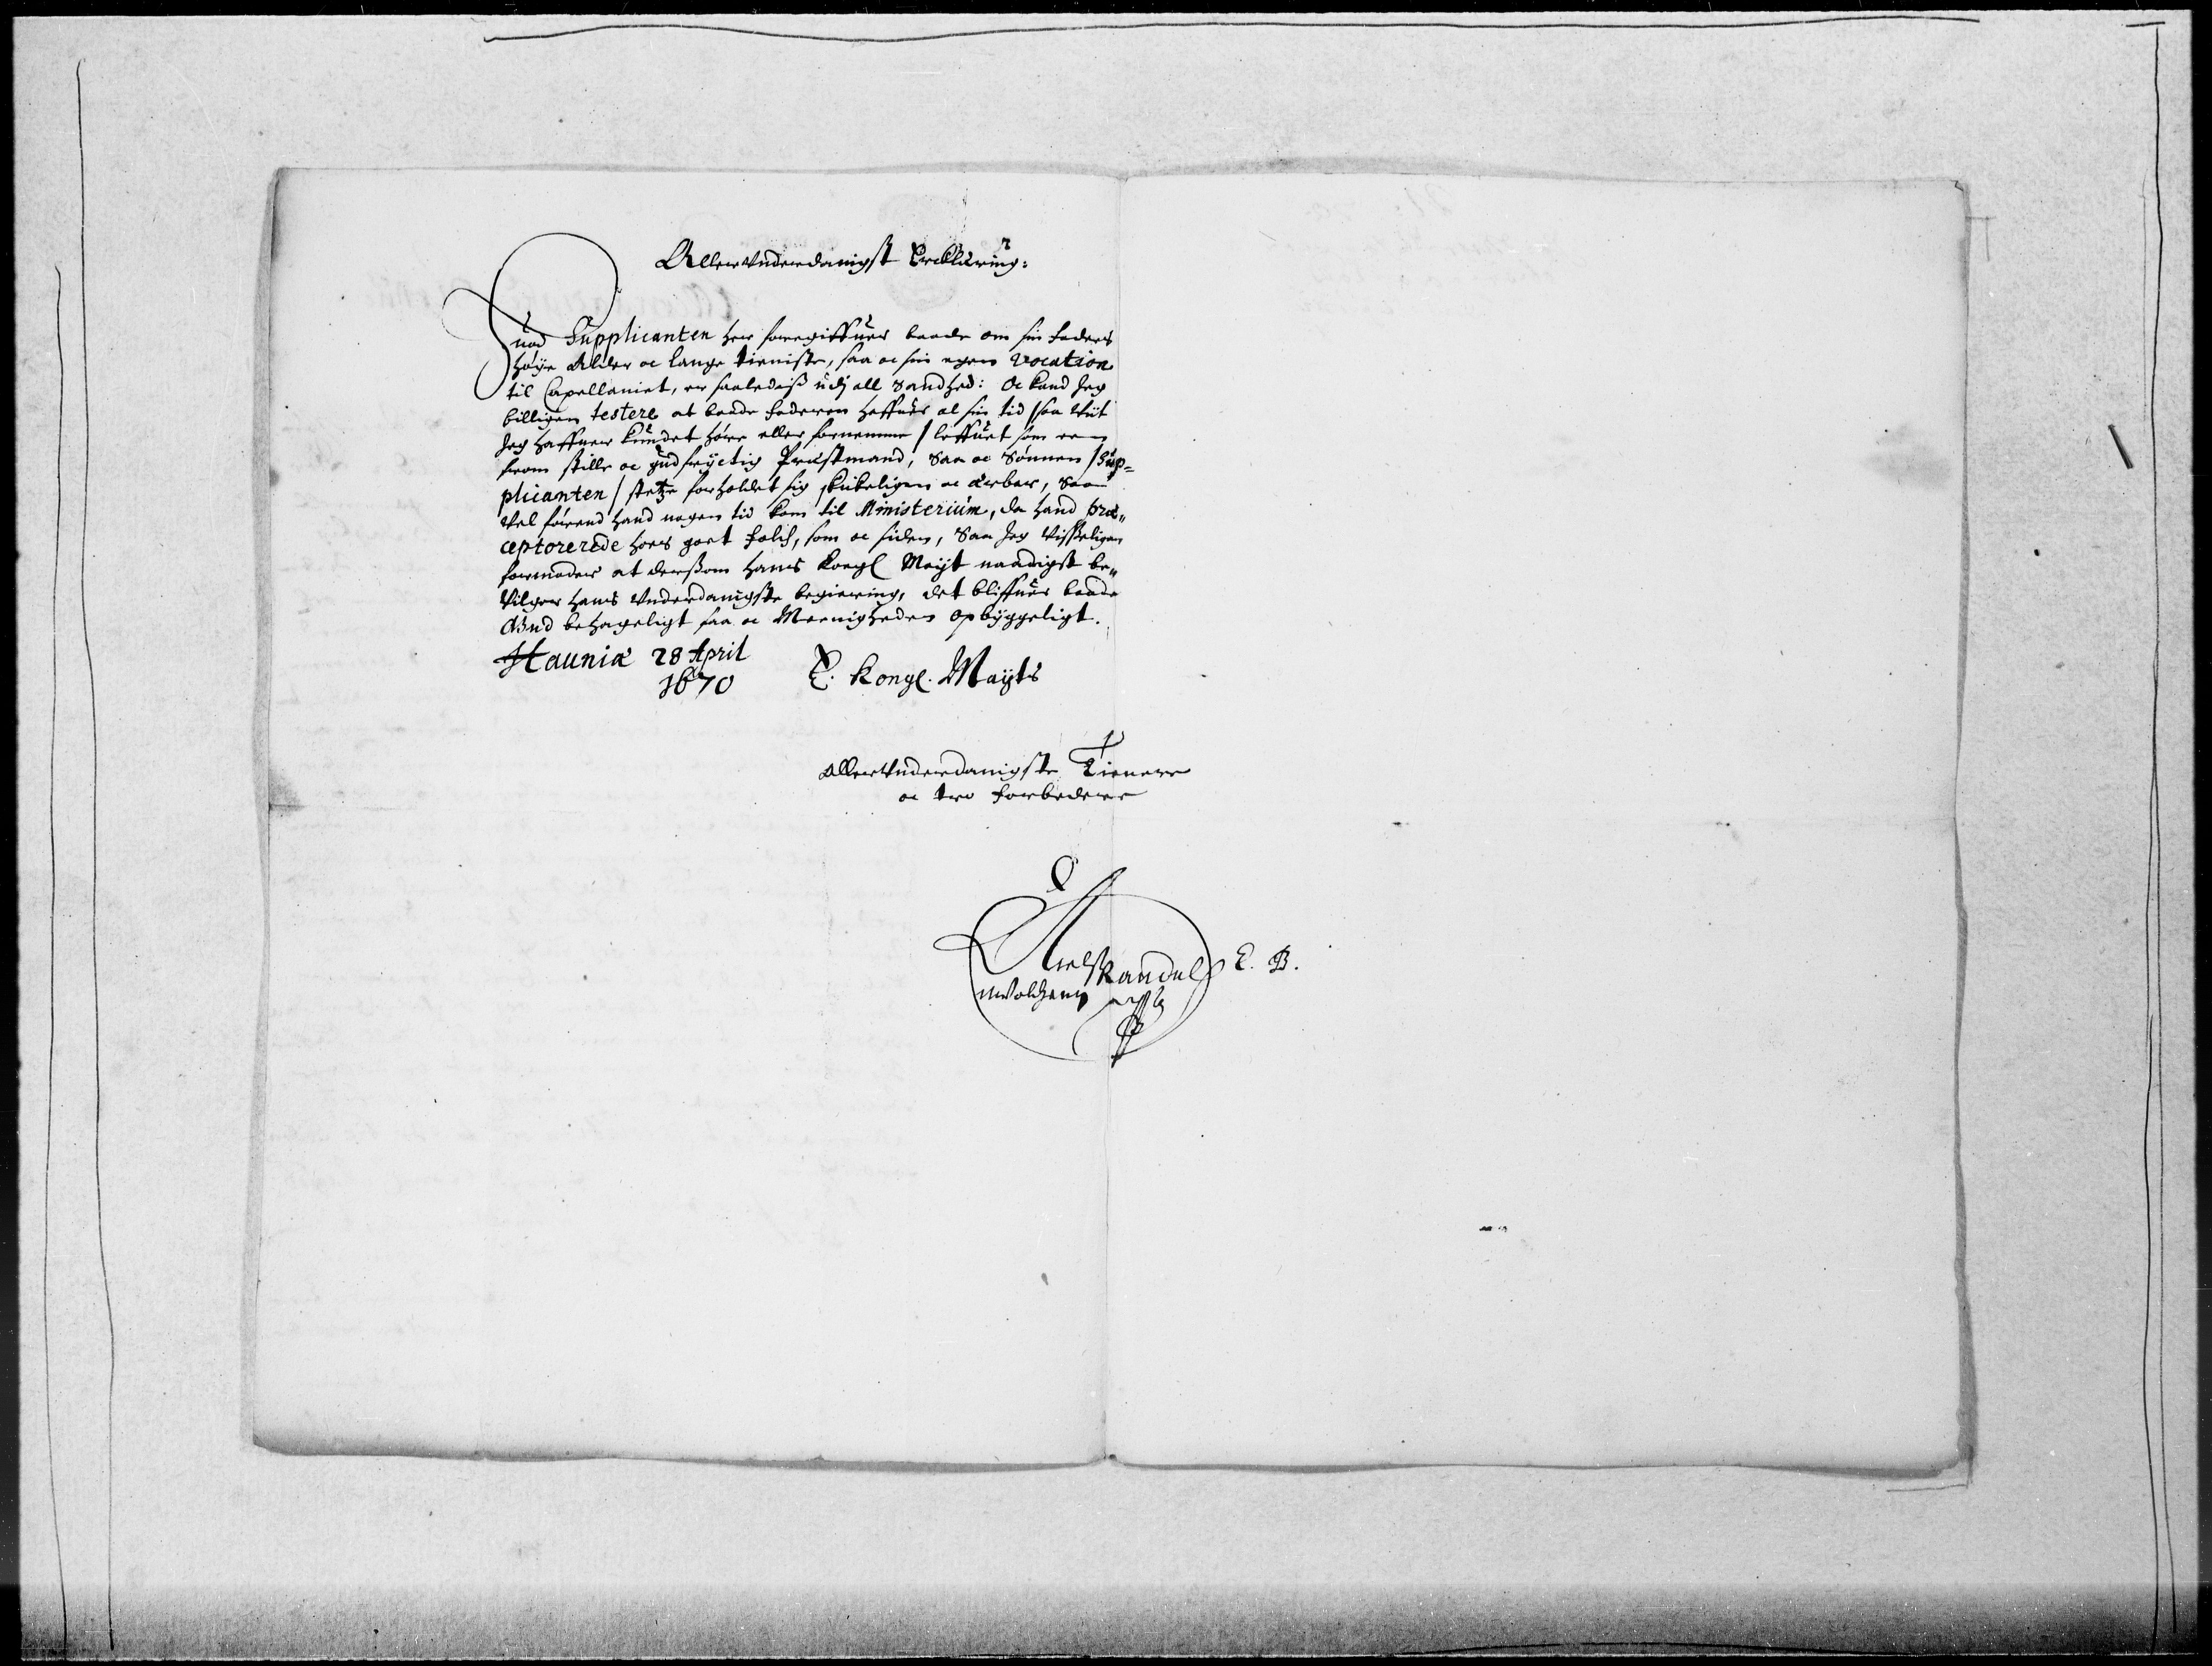 Allerunderdanigst Erklæring:
Huad Supplicanten her foregiffuer baade om sin Faders
høye Alder oc lange tieniste, saa oc sin egen vocation
til Capellaniet, er saaledeiss udj all Sandhed: Oc kand Jeg
billigen testere at baade Faderen haffuer al sin tid /saa vit
Jeg haffuer kundet høre eller fornemme/ leffuet som een
from stille oc gudfryctig Præstmand, Saa oc Sønnen /Sup=
plicanten/ stetze forholdet sig skickeligen oc ærbar, Saa
vel førend hand nogen tid kom til Ministerium, da hand præ„
ceptorerede hoes goet Folch, som oc siden, Saa Jeg visseligen
formoder at dersom hans Kongl Mayt naadigst be„
vilger hans underdanigste begiering, det bliffuer baade
Gud behageligt saa oc Meenigheden opbyggeligt.
Hauniæ 28 April
1670
E. Kongl. Mayts
Allerunderdanigste Tienere
oc tro Forbedere